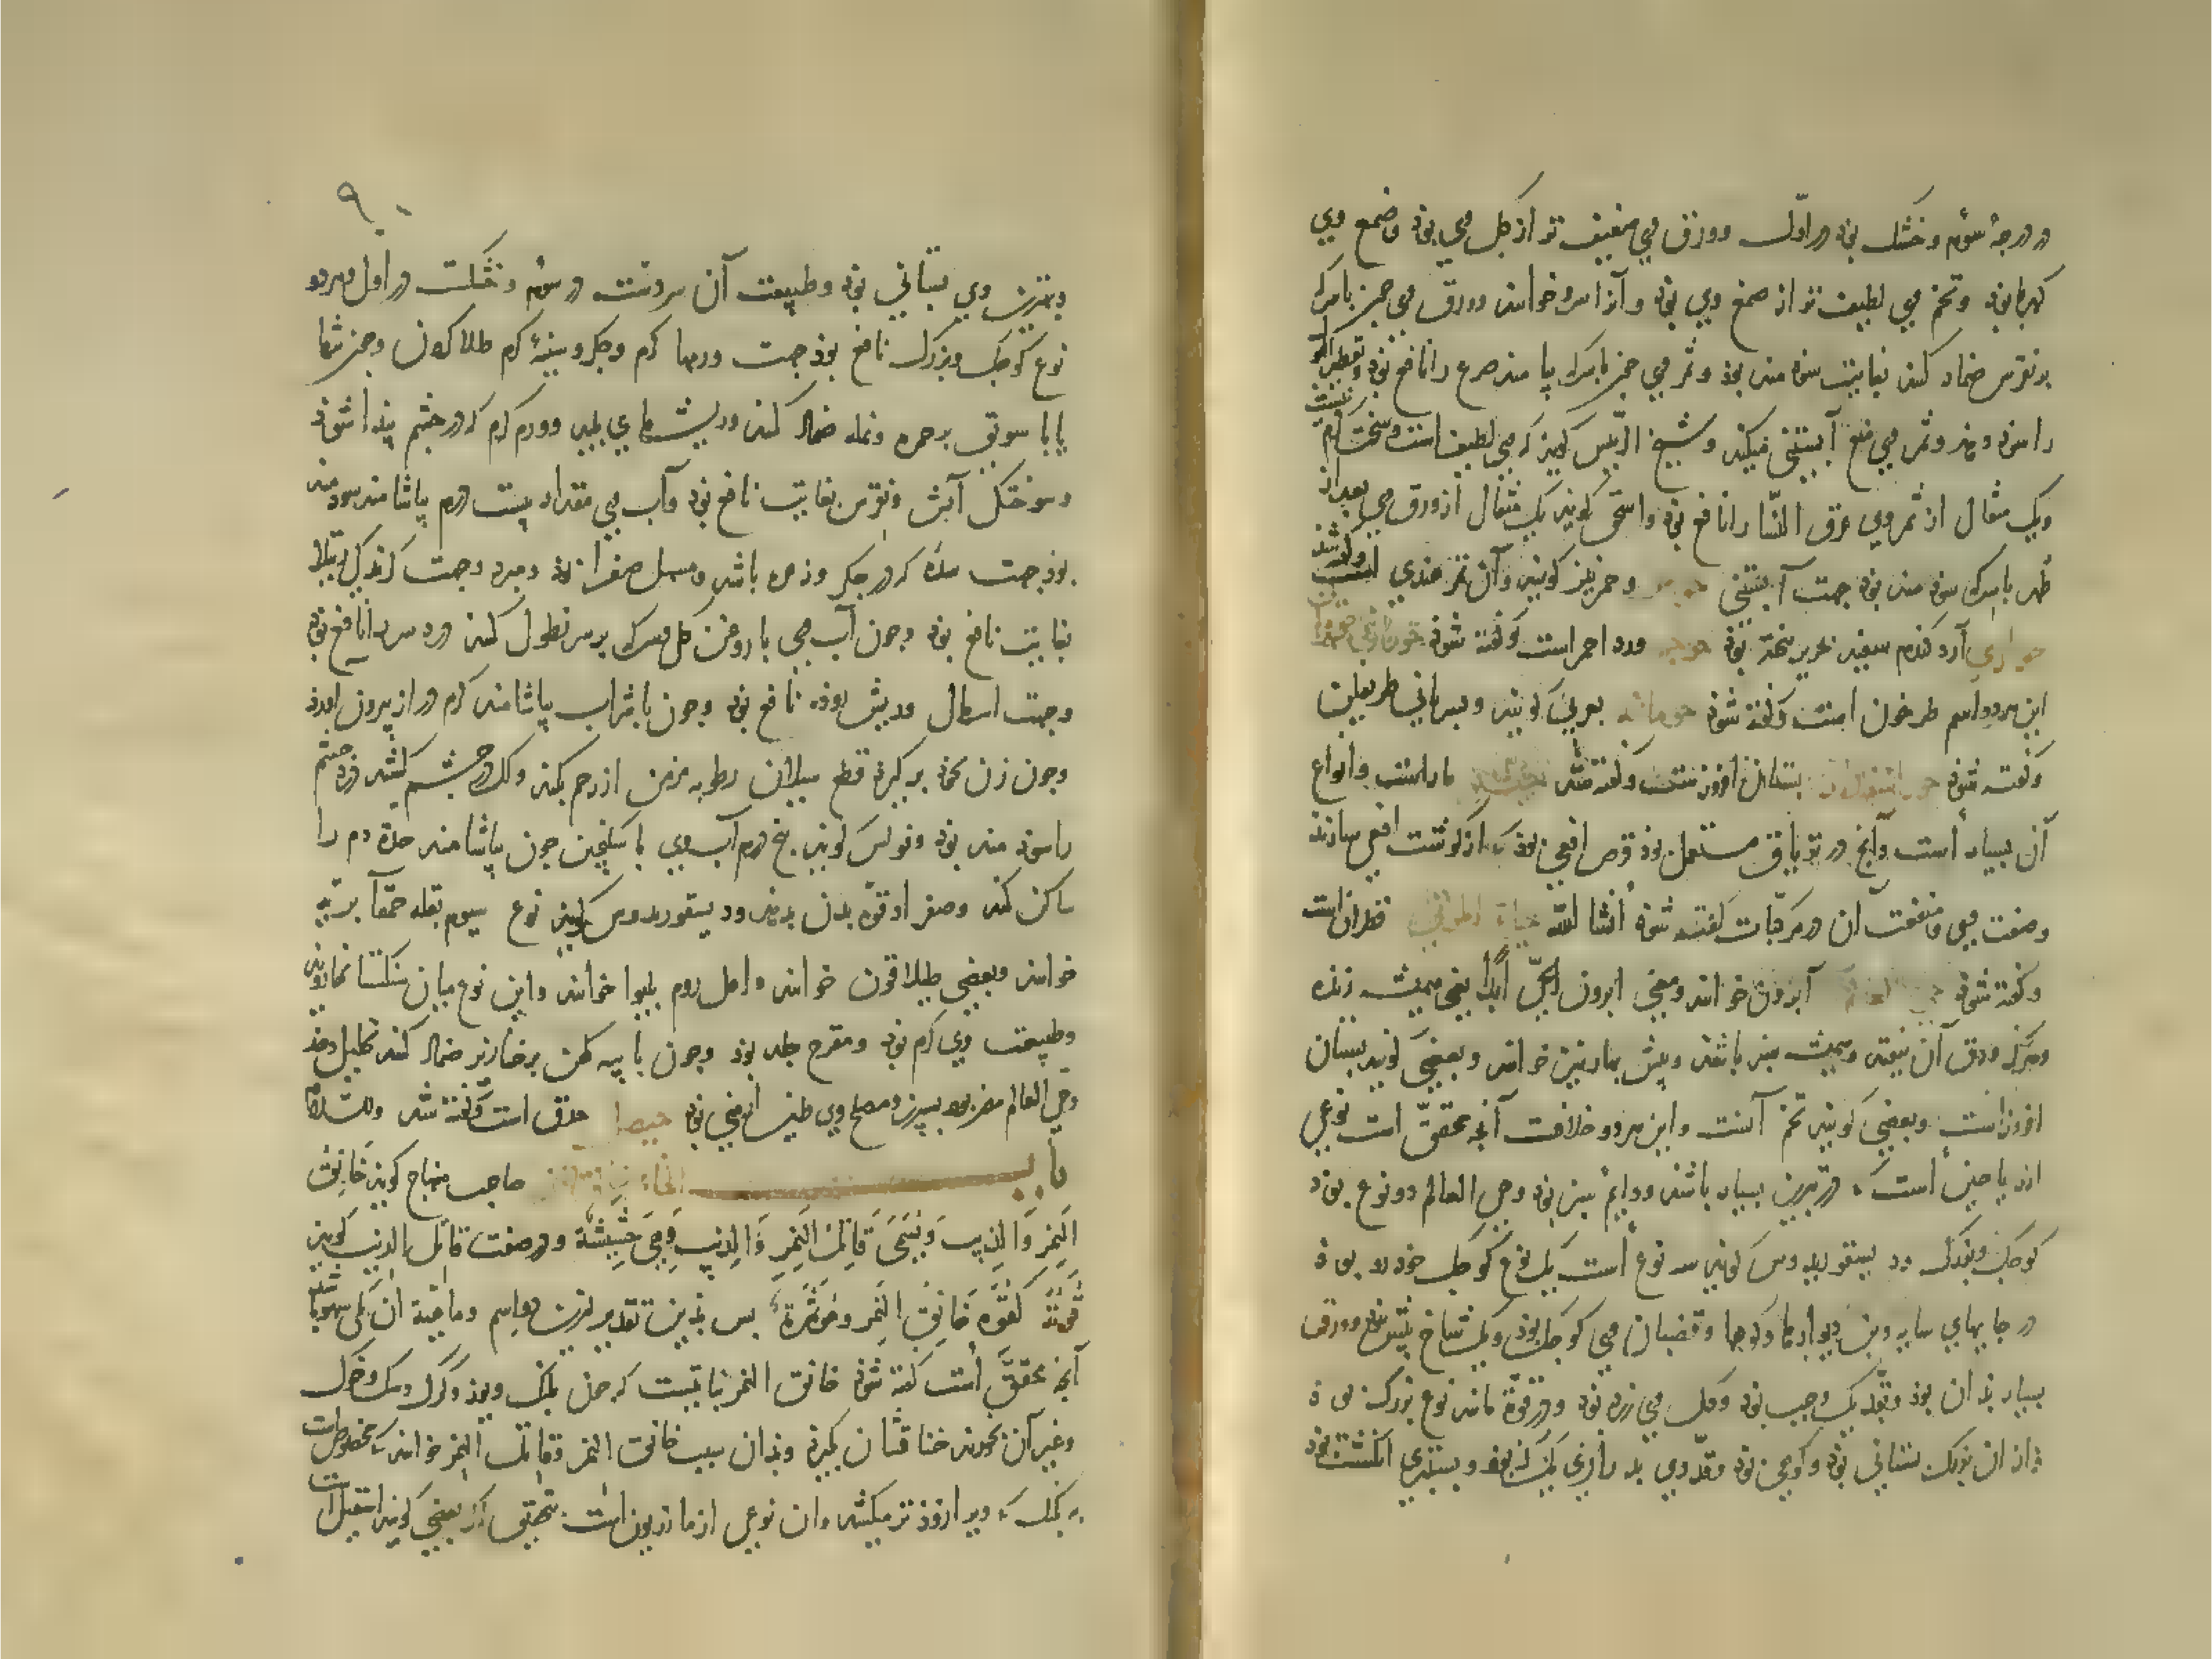 در درجهٔ سوم و خشک بود در اول و ورق وی ضعیف تر از گل وی بود و صمغ وی
کهربا بود و تخم وی لطیف تر از صمغ وی بود و آنرا سرو خوانند و ورق وی چون با سرکه
بر نقرس ضماد کنند بغایت سودمند بود و ثمر وی چون با سرکه بیاشامند صرع را نافع بود و تقطیر البول
را سود دهد و ثمر وی منع آبستنی میکند و شیخ الرئیس گوید که وی لطیف است و سخت گرم نیست
و یک مثقال از ثمر وی عرق النسا را نافع بود و اسحق گوید یک مثقال از ورق وی بعد از
طهر با سرکه سودمند بود جهت آبستنی و حمر نیز گویند و آن تمر هندی است و گفته شد
حواری آرد گندم سفید بود حوجم ورد احمر است گفته شود
این هر دو اسم طرخون است و گفته شود حومانه بعربی گویند و بسریانی طریفلن
و گفته شود بستان افروز است و گفته شد حیه مار است و انواع
آن بسیار است و آنچه در تریاق مستعمل بود قرص افعی بود که از گوشت افعی سازند
و صفت وی و منفعت آن در مرکبات گفته شود انشا الله حیاة الموتی قطران است
و گفته شود حی العالم ابرون خوانند و معنی ابرون الحی ابدا یعنی همیشه زنده
و هرگز ورق آن نیفتد و همیشه سبز باشد و بیش بهار نیز خوانند و بعضی گویند بستان
افروز است و بعضی گویند تخم آنست و این هر دو خلافست آنچه محقق است نوعی
از ریاحین است که در تبریز بسیار باشد و دایم سبز بود و حی العالم دو نوع بود
کوچک و بزرگ و دیسقوریدوس گوید سه نوع است یک نوع کوچک خود رو بود
در جایهای سایه و بن دیوارها و کوهها و قضبان وی کوچک بود و یک شاخ بیش نبود و ورق
بسیار بدان بود و بقد یک وجب بود و گل وی زرد بود و در قوة مانند نوع بزرگ بود
و از آن بزرگ بستانی بود و کوهی بود و قد وی بدرازی یک گز بود و بسطبری انگشت بود
۹۰
و بهترین وی بستانی بود و طبیعت آن سردست در سوم و خشکست در اول هر دو
نوع کوچک و بزرگ نافع بود جهت ورمها گرم و جگر و سینهٔ گرم طلا کردن و چون تنها
یا با سویق بر حمره و نمله ضماد کنند و ریشهای پلید و ورم گرم که در چشم پیدا شود
و سوختگی آتش و نقرس بغایت نافع بود و آب وی مقدار بیست درم بیاشامند سودمند
بود جهت سده که در جگر و زهره باشد و مسهل صفرا بود و مره و جهت گزندگی رتیلا
بغایت نافع بود و چون آب وی با روغن گل و سرکه بر سر نطول کنند درد سر را نافع بود
و جهت اسهال و ریش روده نافع بود و چون با شراب بیاشامند کرم دراز بیرون آورد
و چون زن بخود برگیرد قطع سیلان رطوبه مزمن از رحم بکند و گر در چشم کشند درد چشم
را سودمند بود و فولس گوید پنج درم آب وی با سکنجبین چون بیاشامند حدة دم را
ساکن کند و صفرا و قوة بدن بدهد و دیسقوریدوس گوید نوع سیوم بقله حمقا بریه
خوانند و بعضی طیلافون خوانند و اهل روم خوانند و این نوع میان سنگستانها روید
و طبیعت وی گرم بود و مقرح جلد بود و چون با پیه کهن بر خنازیر ضماد کنند تحلیل دهد
و حی العالم مضر بود بسپرز و مصلح وی طین ارمنی بود است گفته شد
باب الخاء صاحب منهاج گوید خانق
النمر والذیب ویسمی قاتل النمر والذیب وهی حشیشة و در صفت قاتل الذیب گوید
قوته کقوة خانق النمر ومؤثرة پس بدین تقدیر
آنچه محقق است گفته شود خانق النمر نباتیست که چون پلنگ و یوز و گرگ و سگ و خوک
و غیر آن بخورند خناقشان بگیرد و بدان سبب خانق النمر و قاتل النمر خوانند که مخصوص است
به پلنگ که ویرا زودتر میکشد و آن نوعی از مازریون است بتحقیق اگر بعضی گویند